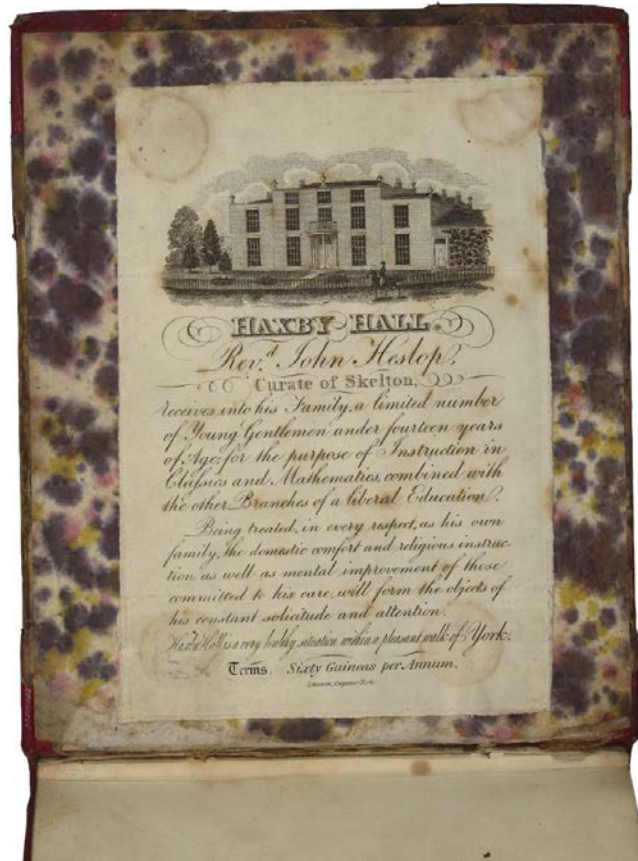 HAXBY HALL.
Revd. John Heslop.
Curate of Skelton,
receives into his Family, a limited number
of Young Gentlemen under fourteen years
of Age; for the purpose of Instruction in
Classics and Mathematics, combined with
the other Branches of a liberal Education.
Being treated, in every respect, as his own
family, the domestic comfort and religious instruc-
tion as well as mental improvement of those
committed to his care, will form the objects of
his constant solicitude and attention.
Haxby Hall is a very healthy situation within a pleasant walk of York.
Terms. Sixty Guineas per Annum.
Engraver York